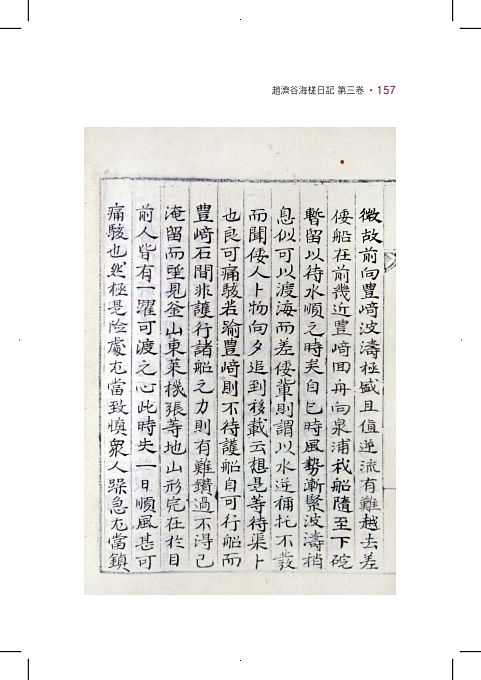 趙濟谷海槎日記 第三卷 · 157
微故前向豊﨑波濤極盛且值逆流有難越去差
倭船在前幾近豊﨑回舟向泉浦我船隨至下碇
暫留以待水順之時矣自巳時風勢漸緊波濤稍
息似可以渡海而差倭軰則謂以水逆稱托不發
而聞倭人卜物向夕追到移載云想是等待渠卜
也良可痛駭若踰豊﨑則不待護船自可行船而
豊﨑石間非護行諸船之力則有難鑽過不得已
淹留而望見釜山東萊機張等地山形完在於目
前人皆有一躍可渡之心此時失一日順風甚可
痛駭也然極是險處尤當致愼衆人躁急尤當鎭